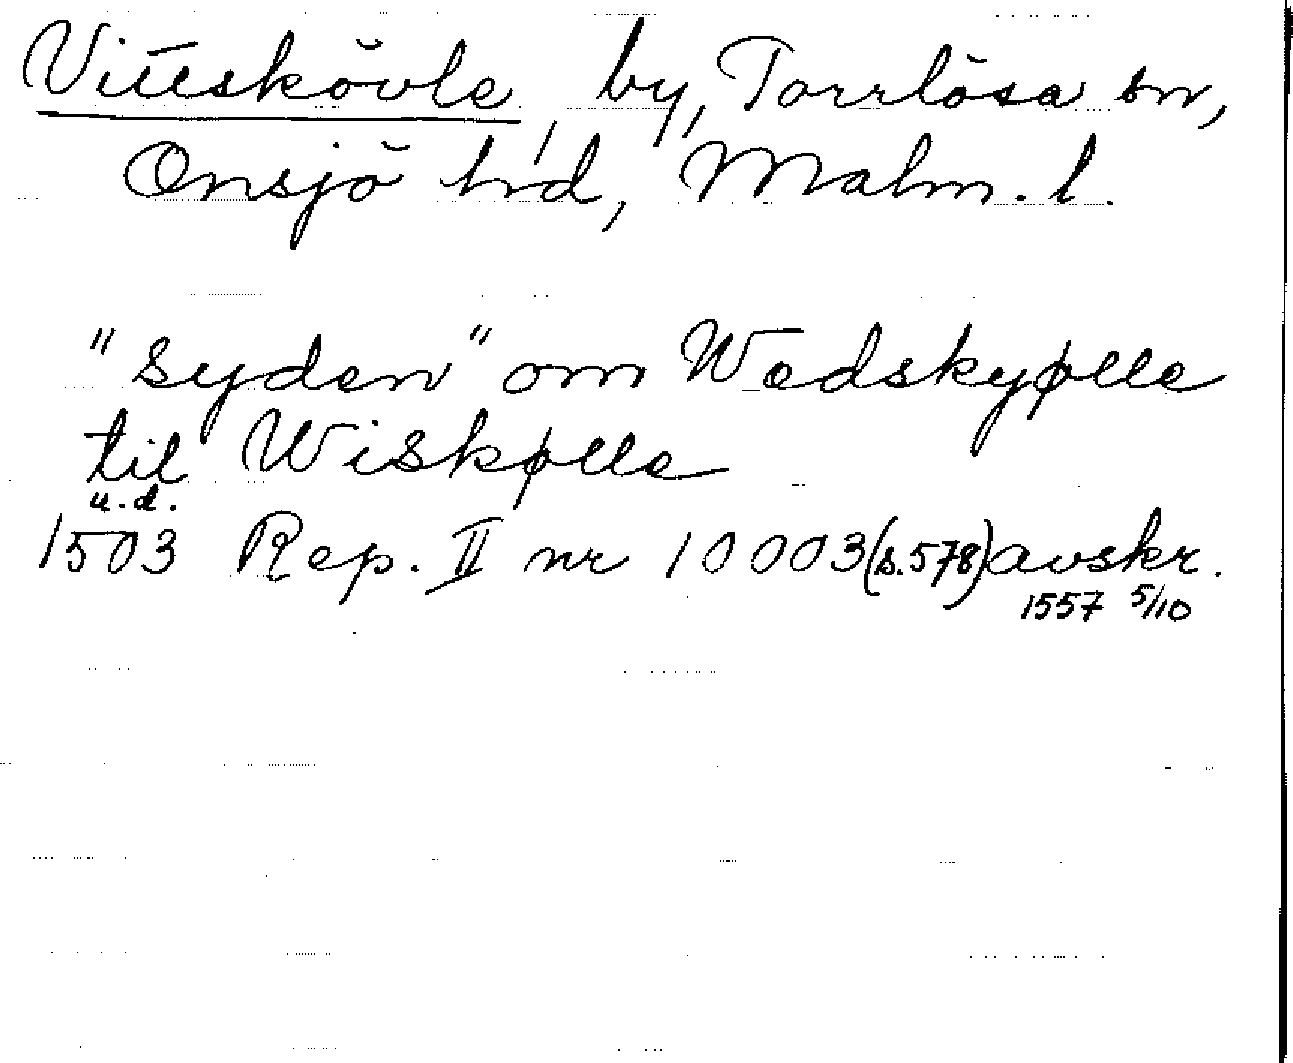 Vittskövle, by, Torrlösa sn,
Onsjö hd, Malm. l.
"Syden" om Wedskyølle
til Wiskølle
u.d.
1503 Rep. II nr 10003 (s. 578) avskr.
1557 5/10